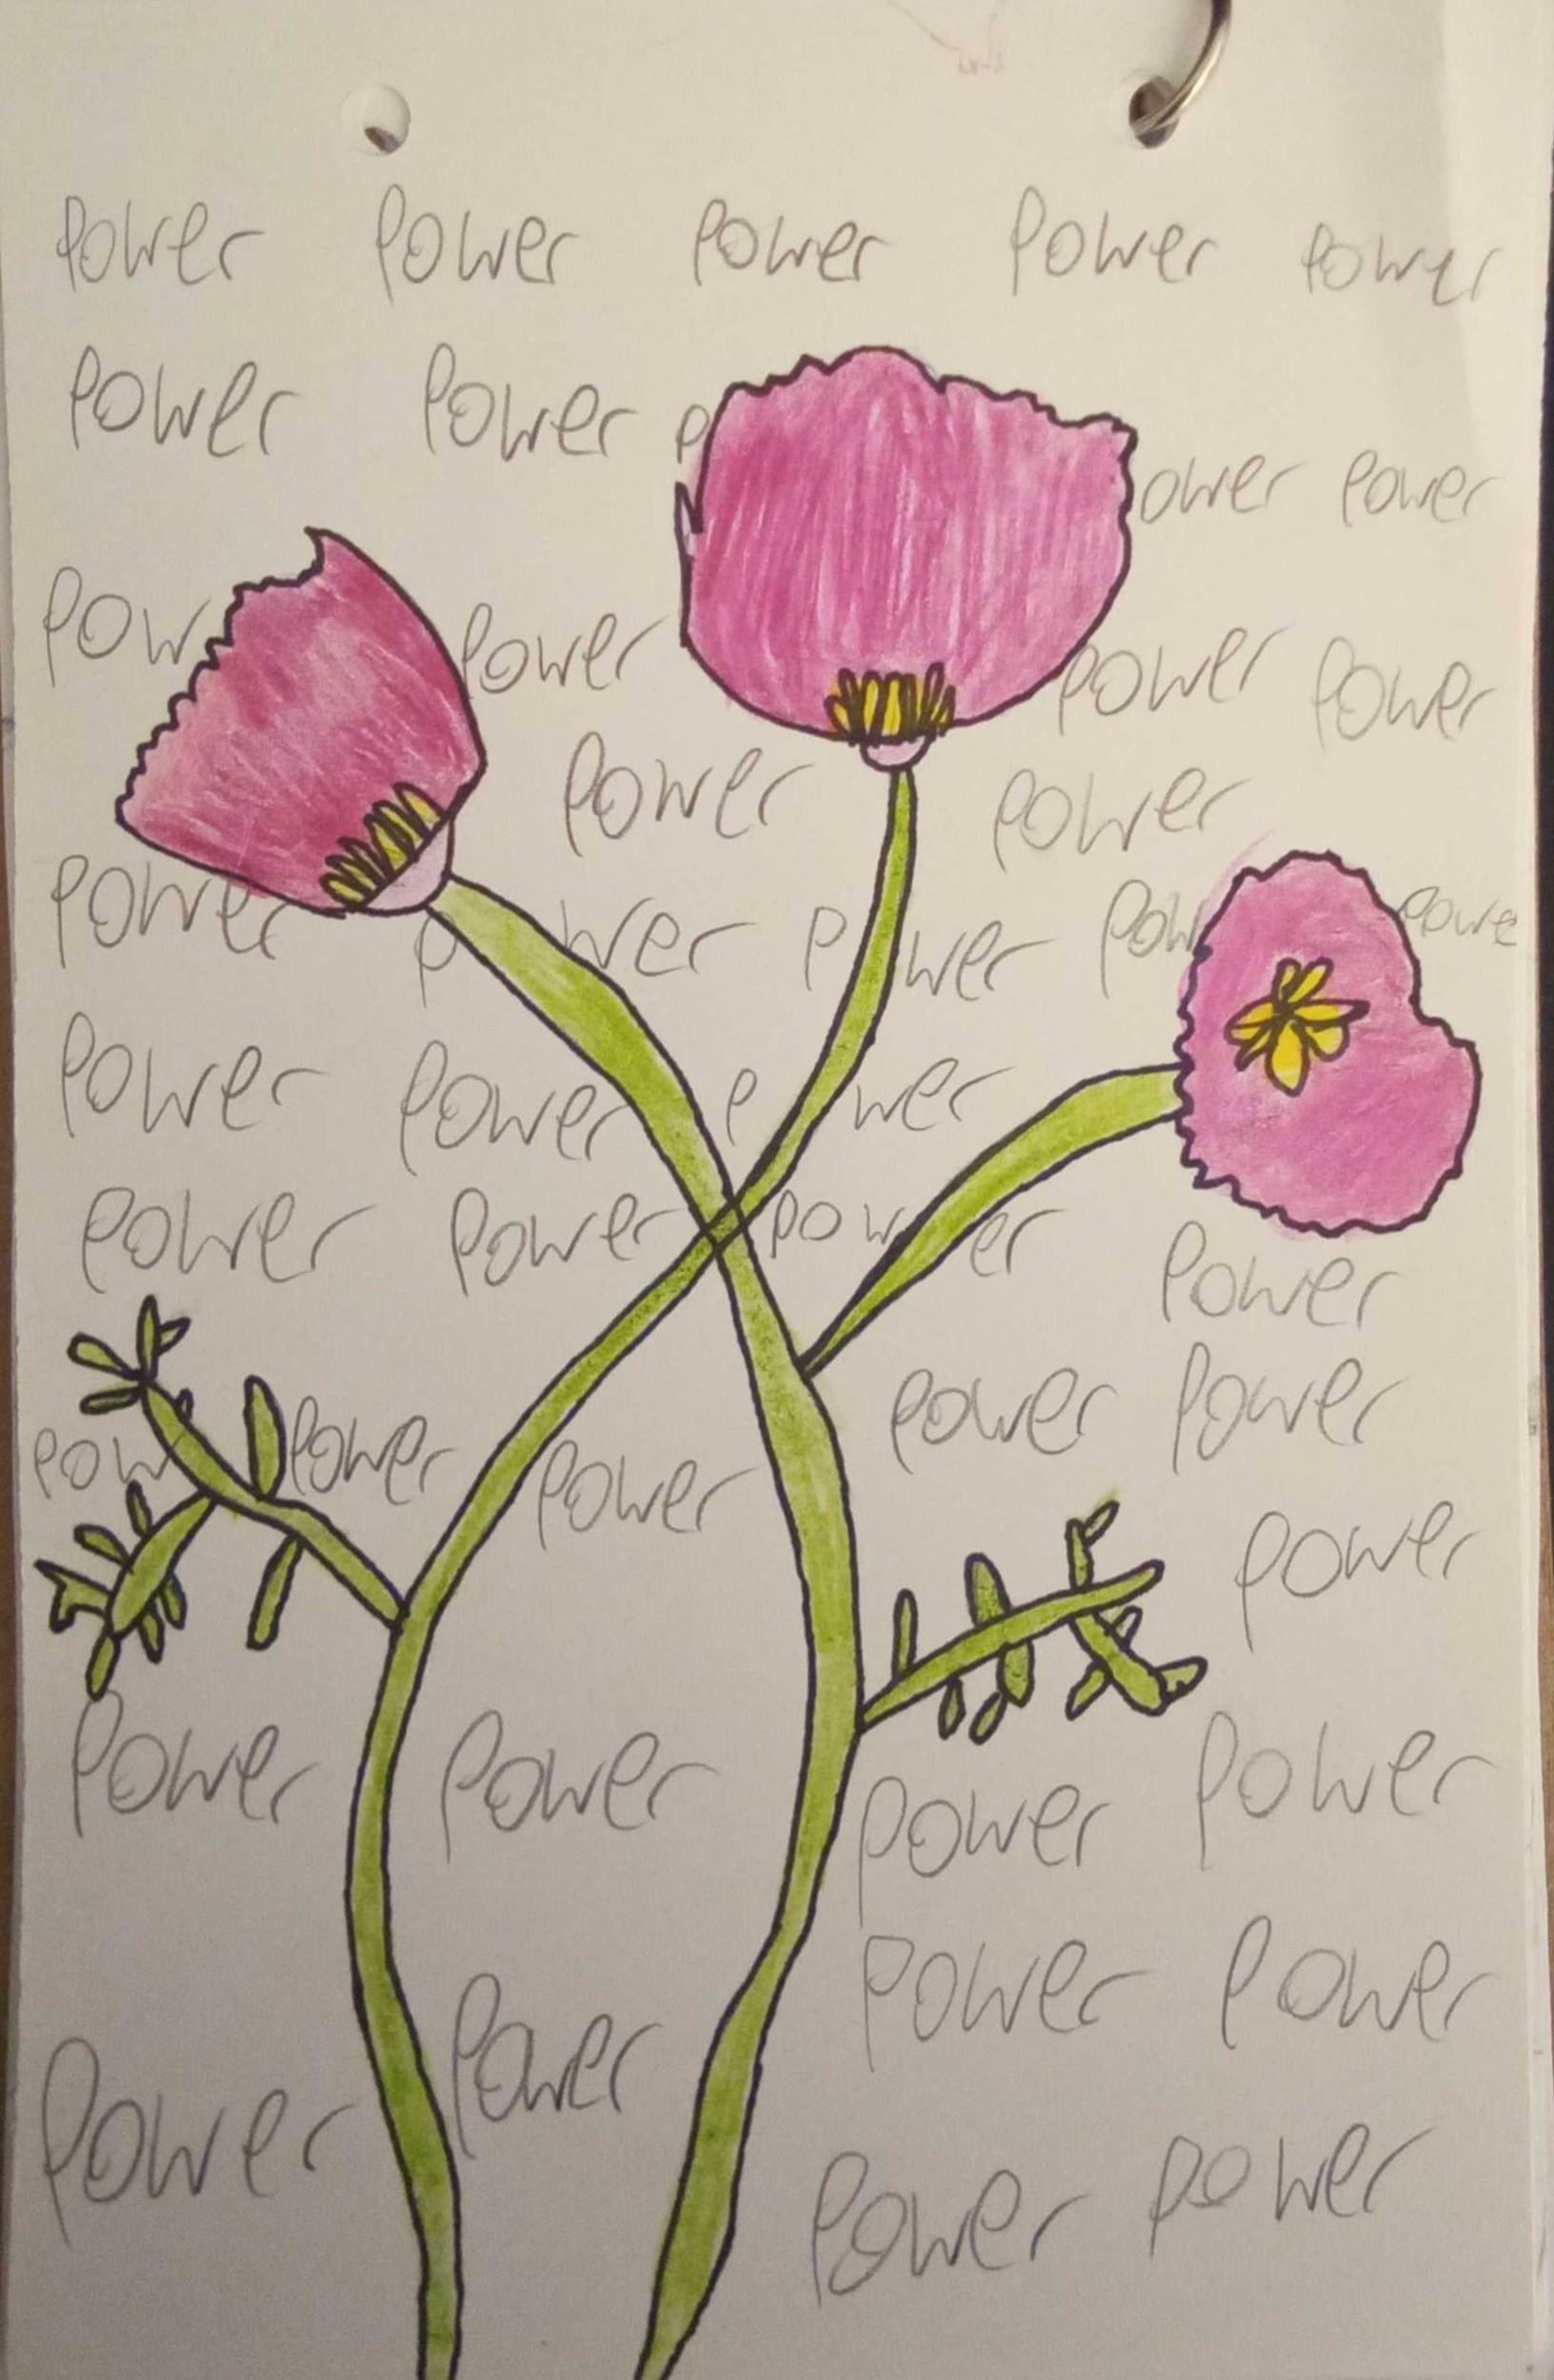 Power Power Power Power Power
Power Power P ower Power
Pow Power Power Power
Power Power
Power P wer P wer Pow Powe
Power Power P wer
Power Power Pow er Power
Pow Power Power Power Power
Power
Power Power Power Power
Power Power
Power Power Power Power